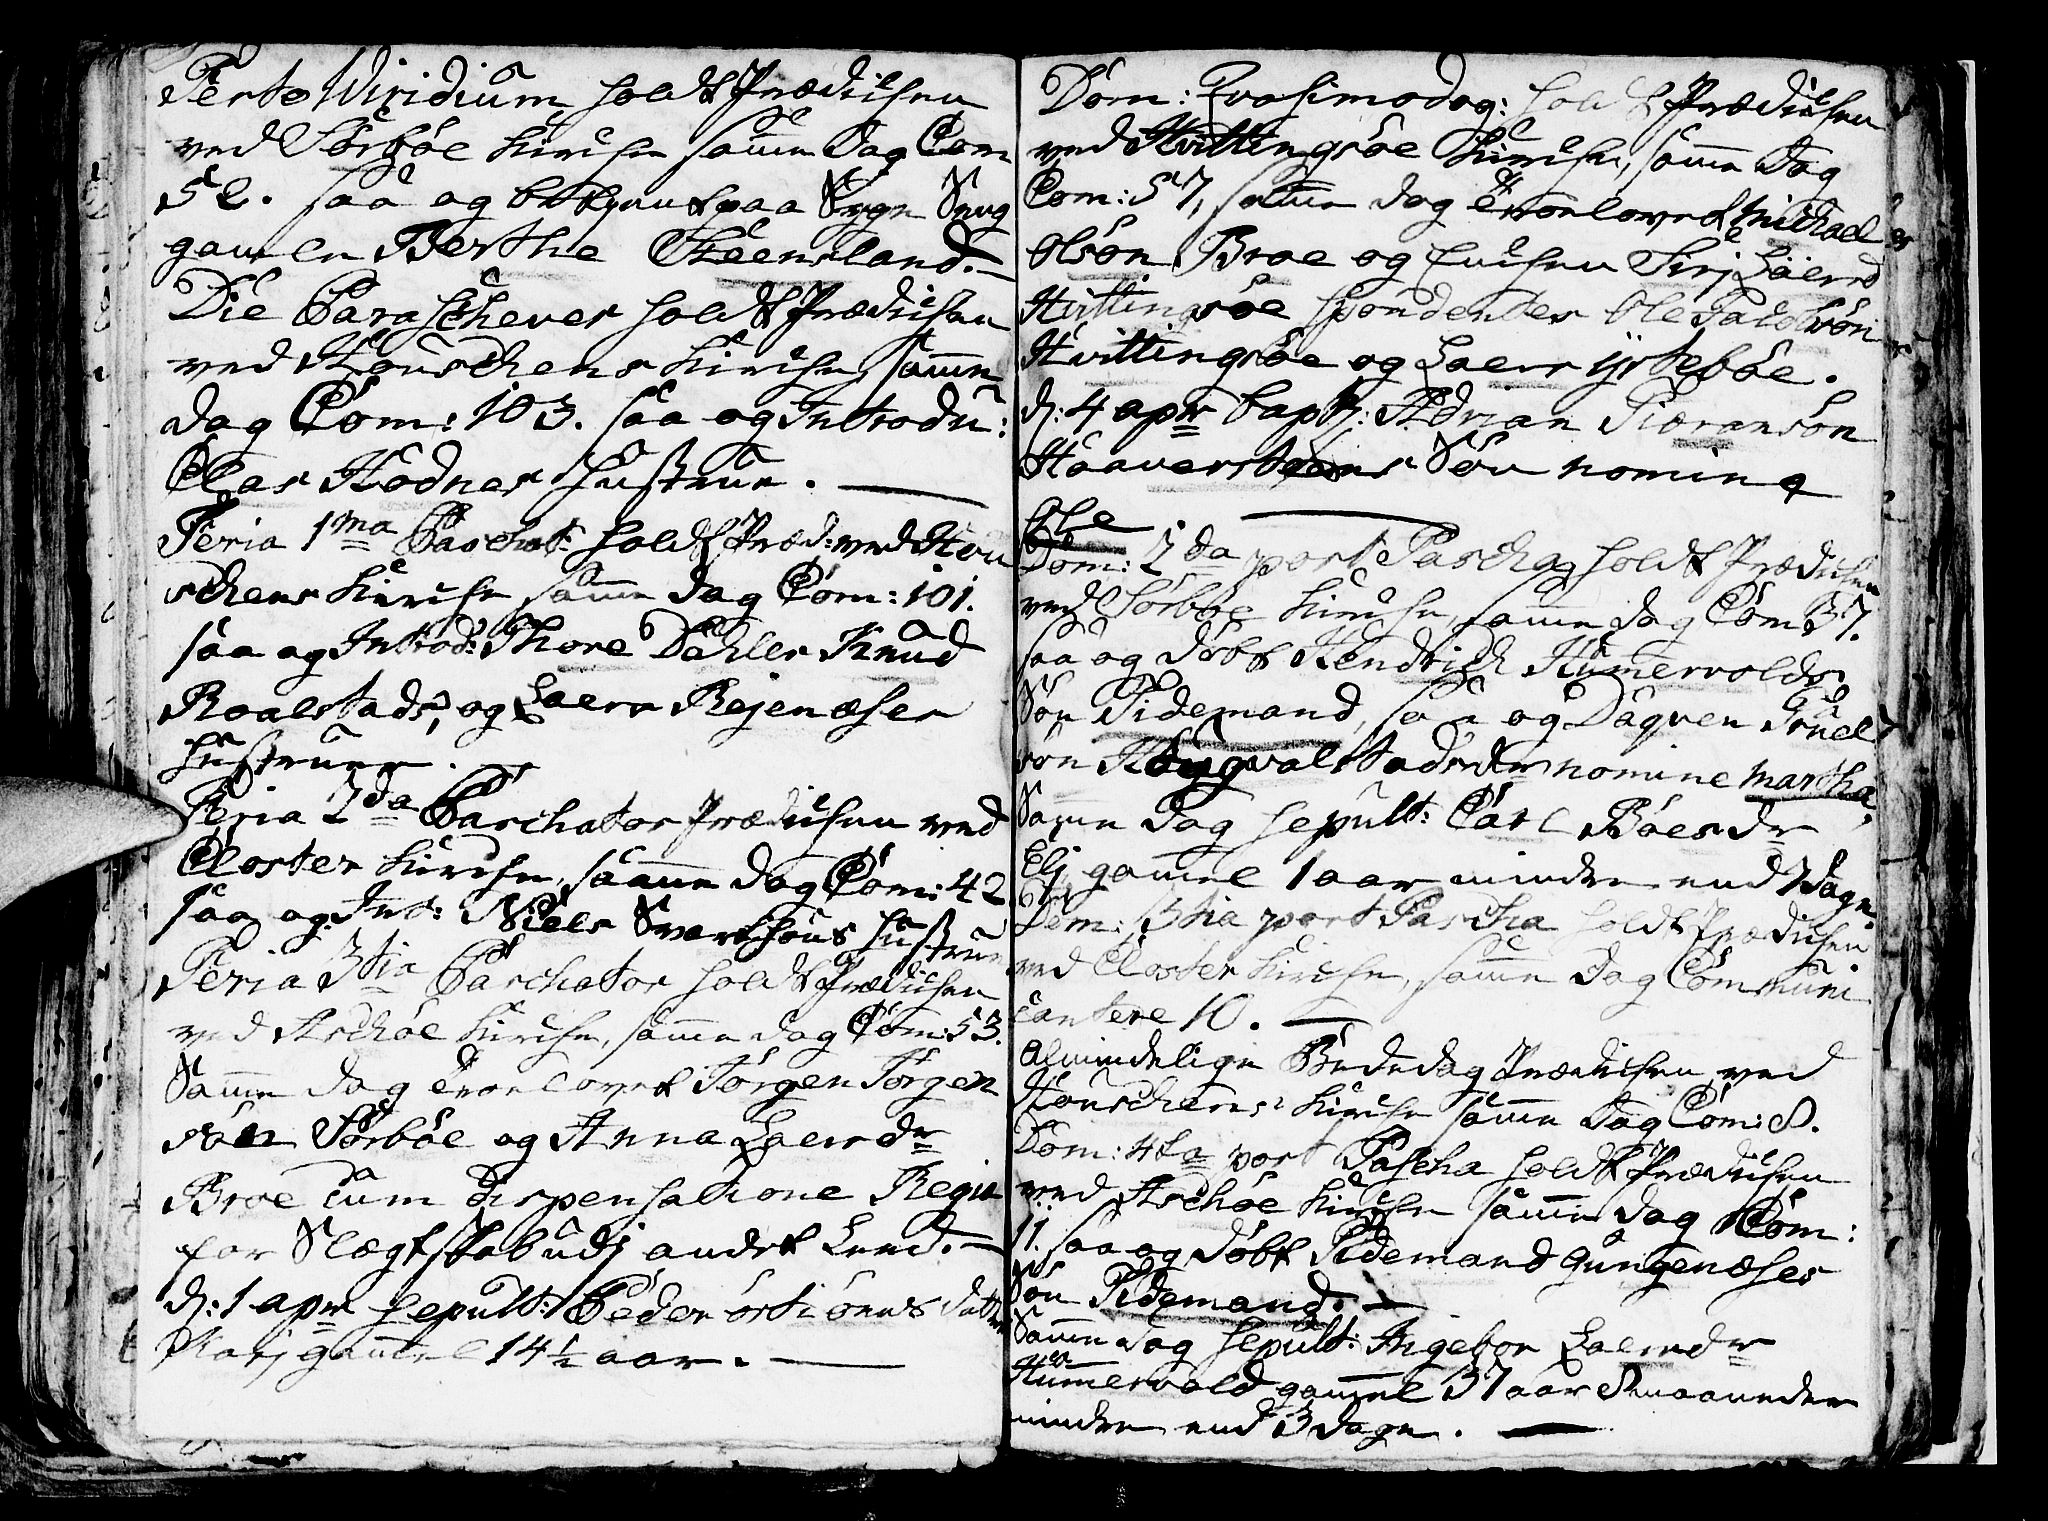 Festo Viridium holdt Prædichen
ved Sørbøe Kirche samme dag Com
52. saa og betient paa Syge Seng
gamle Berthe Steensland.
Die Parascheves holdt Prædichen
ved Houschens Kirche, samme
dag Com: 103. saa og Introdu:
Clas Hodnes Hustrue.
Feria 1ma Paschat: holdt Præd: ved Hou
schens Kirche samme dag Com: 101.
saa og Introd: Thore Dahles Knud
Roalstads, og Laers Rejenæses
Hustruer.
Feria 2da Paschatos Prædichen ved
Closter Kirche, samme dag Com: 42
saa og Int: Niels Hustrue
Feria 3tia Paschatos holdt Prædichen
ved Aschøe Kirche, samme dag Com: 53.
Samme dag troelovet Jørgen Jørgen
søn Sørbøe og Anna Laersdr
Broe Cum dispensatione Regia
for Slægtskab udj andet Leed.
d: 1 apr sepult: Peder datter
Karj gammel 14½ aar.
Dom: Qvasimodog: holdt Prædichen
ved Hvittingsøe Kirche, samme dag
Com: 57, samme dag troelovet Michael
Olsøn Broe og Enchen Sirj Laersd
Hvittingsøe Spondentes Ole Jacobsøn
Hvittingsøe og Laers ystebøe.
d: 4 apr bapt: Adrian
Søn nomine
Ole
Dom: 2da post Pascha holdt Prædichen
ved Sørbøe Kirche, samme dag Com 37.
saa og døbt Hendrich Hummervolds
Søn Tidemand, saa og Dagven
søn dr nomine Martha,
Samme dag sepult: Carl Bøes dr
Elj gammel 1 aar mindre end 7 dage.
Dom: 3tia post Pascha holdt Prædichen
ved Closter Kirche, samme dag Communi
cantere 10.
Almindelige Bededag Prædichen ved
Houschens Kirche samme dag Com: 8.
Dom: 4ta post Pascha holdt Prædichen
ved Aschøe Kirche samme dag Com:
11. saa og døbt Tidemand Gungenæses
Søn Tidemand.
Samme dag sepult: Ingebor Laersdr
Hummervold gammel 37 aar 8 maaneder
mindre end 3 dage.